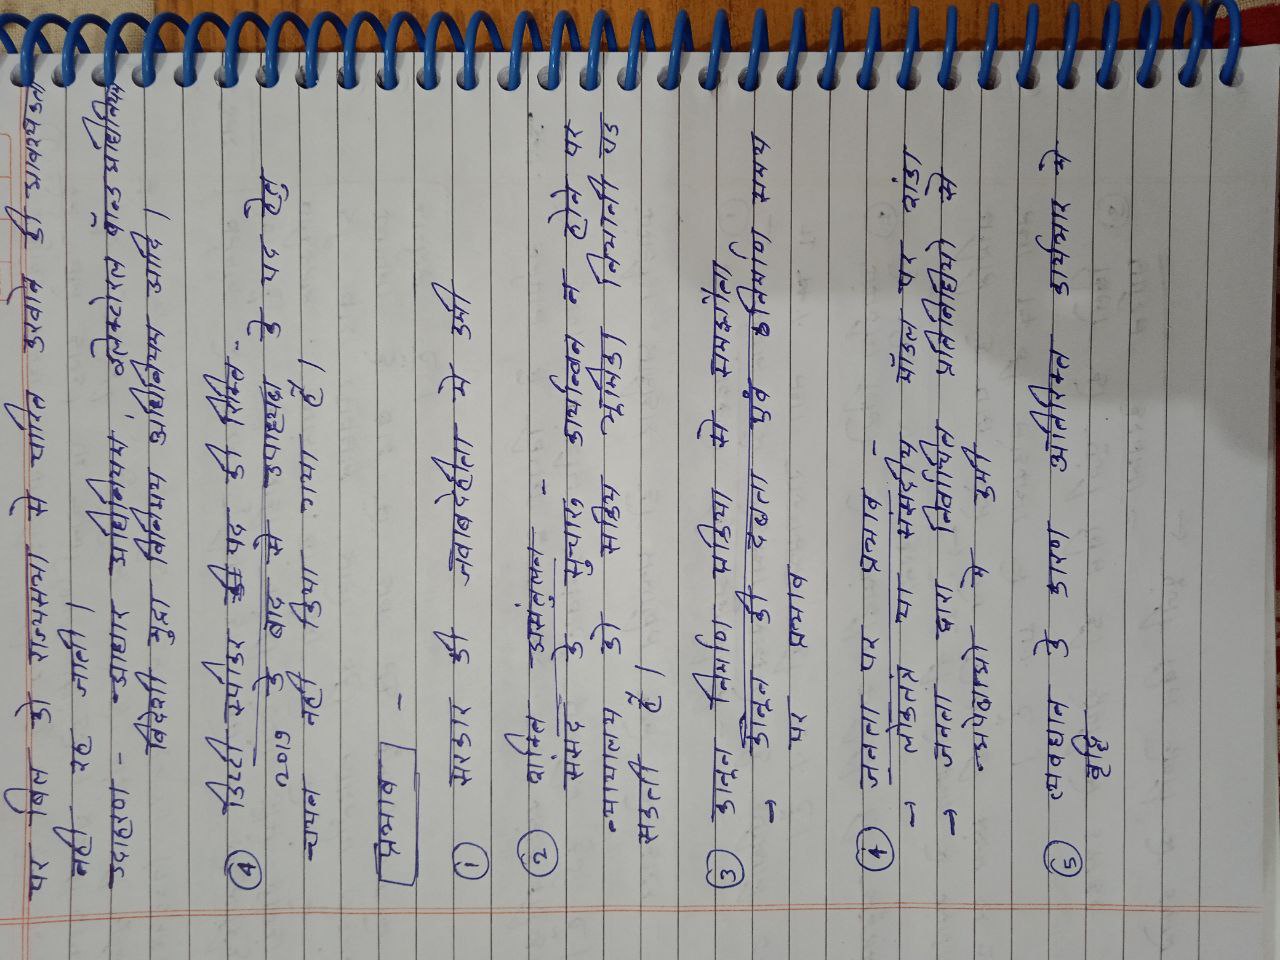 पर बिल को राज्यसभा से पारित करवाने की आवश्यकता
नही रह जाती।
उदाहरण - आधार अधिनियम, इलेक्टोरल बॉन्ड अधिनियम
विदेशी मुद्रा विनियमय अधिनियम आदि।
④ डिप्टी स्पीकर के पद की रिक्ति -
2019 के बाद से उपाध्यक्ष के पद हेतु
चयन नही किया गया है।
प्रभाव -
① सरकार की जवाबदेहीता मे कमी
② शक्ति असंतुलन -
संसद के सुचारू कार्यान्वन न होने पर
न्यायालय को सक्रिय भूमिका निभानी पड
सकती है।
③ कानून निर्माण प्रक्रिया से समझौता
→ कानून की दक्षता एवं क्रनिर्माण समय
पर प्रभाव
④ जनता पर प्रभाव -
→ लोकतंत्र या संसदीय मॉडल पर शंका
→ जनता द्वारा निर्वाचित प्रतिनिधियो से
अपेक्षाओ मे कमी
⑤ व्यवधान के कारण अतिरिक्त कार्यभार मे
वृद्धि